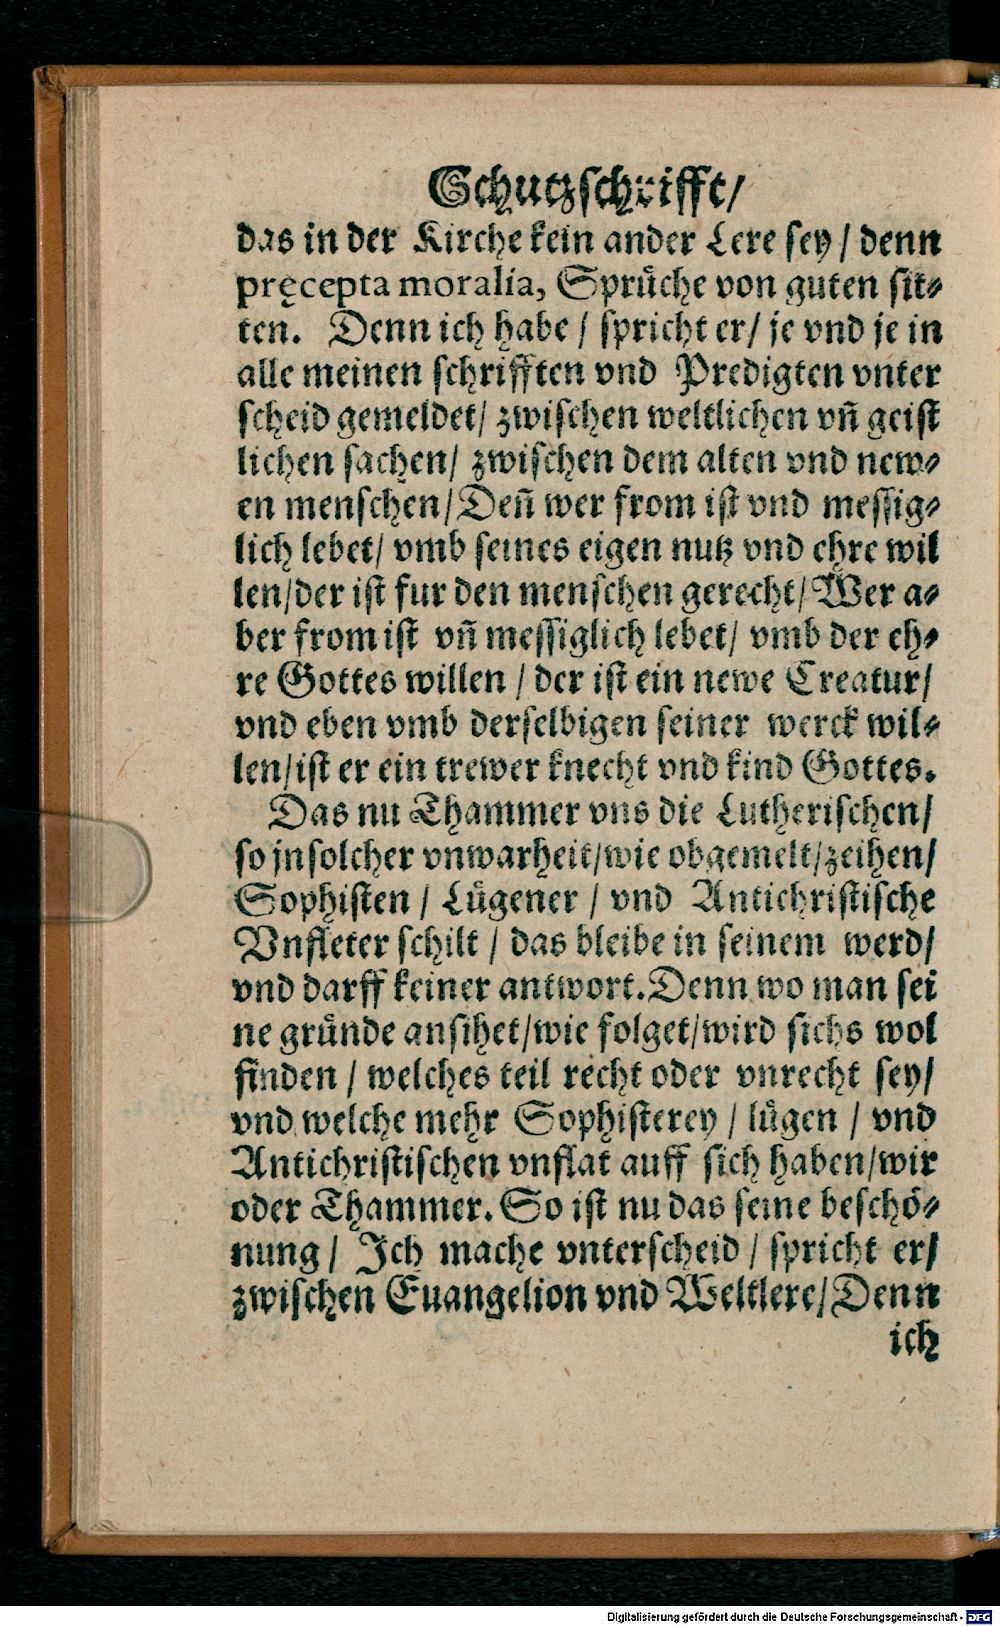 Schutzschrifft/
das in der Kirche kein ander Lere sey / denn
pręcepta moralia, Sprüche von guten sit⸗
ten. Denn ich habe / spricht er/ je vnd je in
alle meinen schrifften vnd Predigten vnter
scheid gemeldet/ zwischen weltlichen vñ geist
lichen sachen/ zwischen dem alten vnd new⸗
en menschen/ Deñ wer from ist vnd messig⸗
lich lebet/ vmb seines eigen nutz vnd ehre wil
len/der ist fur den menschen gerecht/ Wer a⸗
ber from ist vñ messiglich lebet/ vmb der eh⸗
re Gottes willen / der ist ein newe Creatur/
vnd eben vmb derselbigen seiner werck wil⸗
len/ist er ein trewer knecht vnd kind Gottes.
Das nu Thammer vns die Lutherischen/
so jn solcher vnwarheit/wie obgemelt/zeihen/
Sophisten / Lügener / vnd Antichristische
Vnfleter schilt / das bleibe in seinem werd/
vnd darff keiner antwort. Denn wo man sei
ne gründe ansihet/wie folget/wird sichs wol
finden / welches teil recht oder vnrecht sey/
vnd welche mehr Sophisterey / lügen / vnd
Antichristischen vnflat auff sich haben/wir
oder Thammer. So ist nu das seine beschö⸗
nung / Ich mache vnterscheid / spricht er/
zwischen Euangelion vnd Weltlere/ Denn
ich
Digitalisierung gefördert durch die Deutsche Forschungsgemeinschaft - DFG